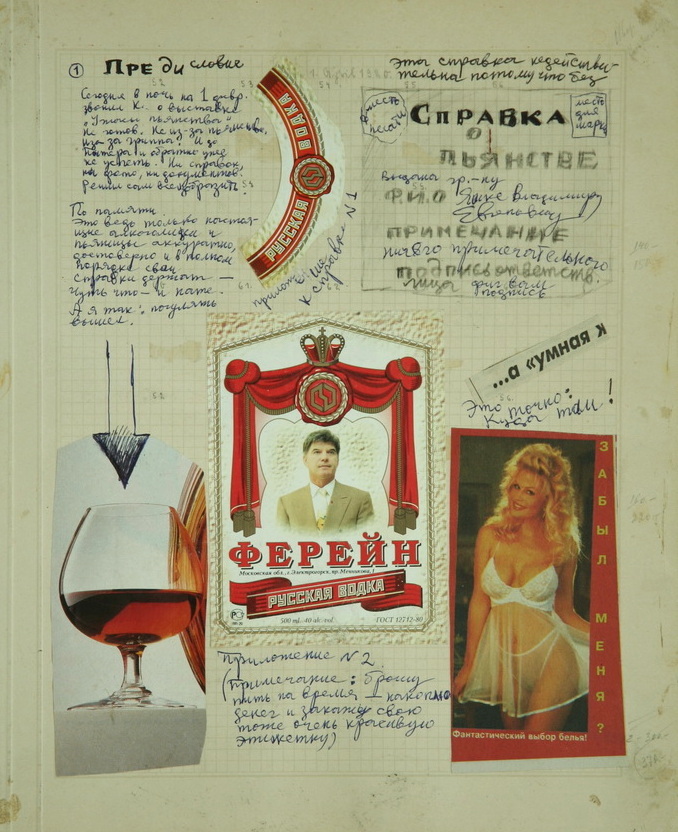 ① ПРЕДисловие
Сегодня в ночь на 1 февр.
звонил К. о выставке
"Утюги пьянства"
не готов. Не из-за пьянства,
из-за гриппа! И до
Питера и обратно уже
не успеть. Ни справок,
ни фото, ни документов.
Решил сам всё
По памяти.
Это ведь только настоя-
щие алкоголики и
пьяницы аккуратно,
достоверно и в полном
порядке свои
справки держат —
чуть что — и нате.
А я так: погулять
вышел.
РУССКАЯ ВОДКА
приложение
к справке N 1
эта справка недействи-
тельна потому что без
место
печати
место
для
марки
СПРАВКА
О
ПЬЯНСТВЕ
Выдана гр.-ну
Ф.И.О Яшке Владимиру
Евгеньевичу
ПРИМЕЧАНИЕ
ничего примечательного
подпись ответств.
лица фиг вам
подпись
...а «умная к
Это точно:
Куда там!
ФЕРЕЙН
Московская обл., г.Электрогорск, пр.Мечникова, 1
РУССКАЯ ВОДКА
500 ml. 40 alc.vol.
ГОСТ 12712-80
ЗАБЫЛ МЕНЯ?
Фантастический выбор белья!
Приложение N 2
(примечание: брошу
пить на время накоплю
денег и закажу свою
тоже очень красивую
этикетку)